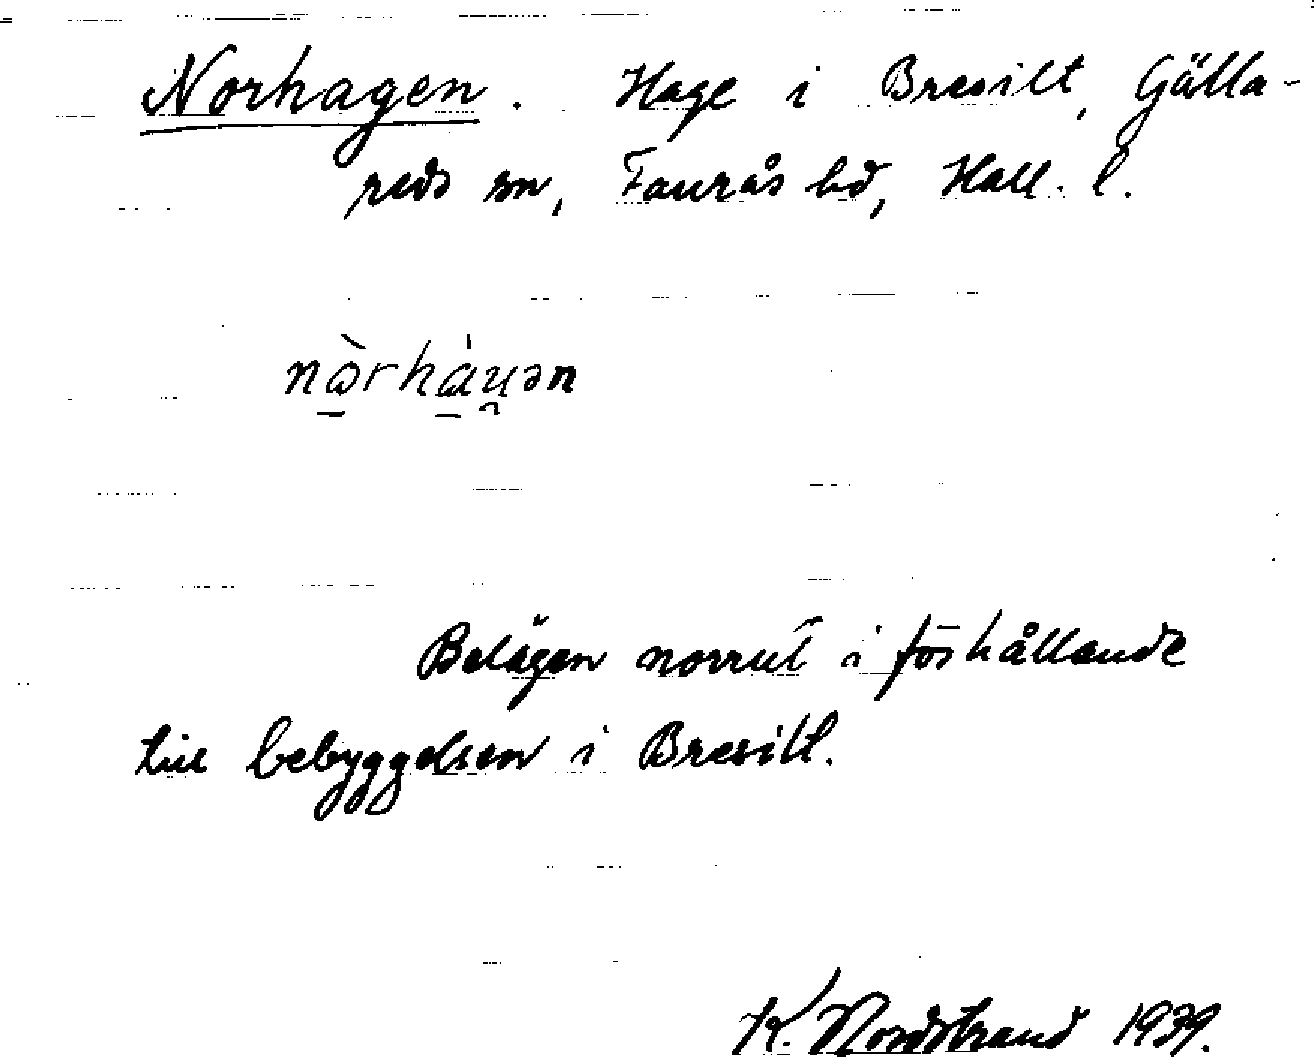 Norhagen. Hage i Bresilt, Gälla-
reds sn, Faurås hd, Hall. l.
Belägen norrut i förhållande
till bebyggelsen i Bresilt.
K. Nordstrand 1939.